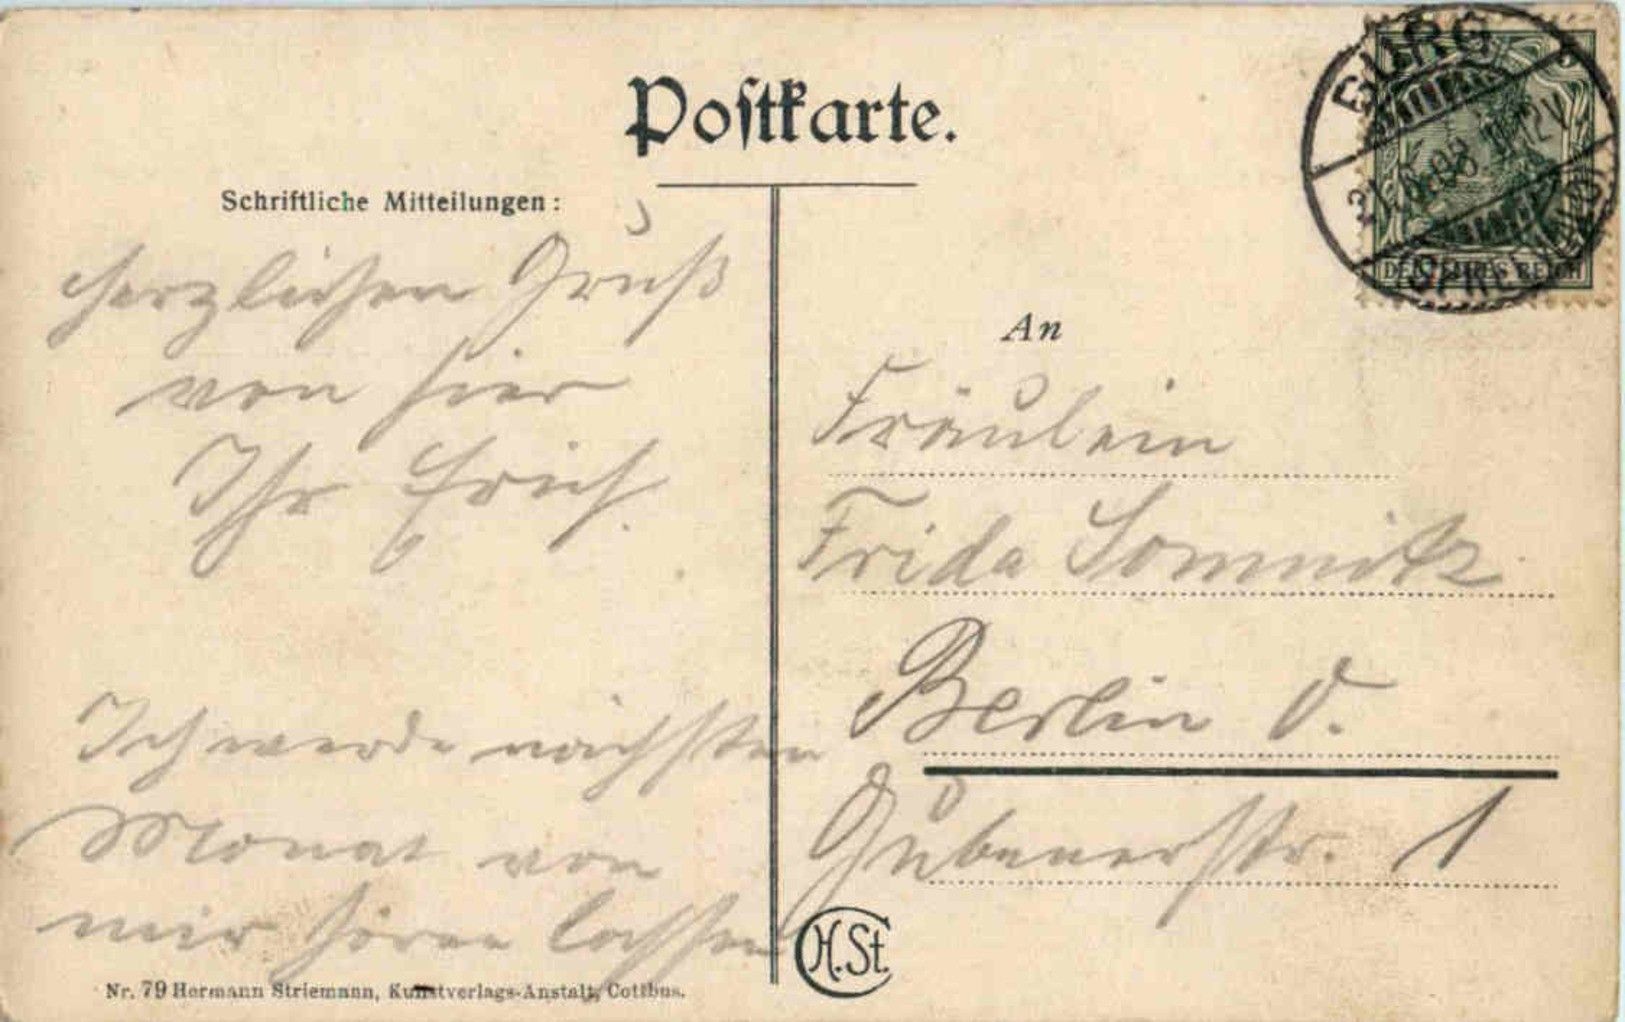 Postkarte.
Schriftliche Mitteilungen:
Herzlichen Gruß
von hier
Ihr Erich.
Ich werde nächsten
Monat von
mir hören lassen
Nr. 79 Hermann Striemann, Kunstverlags-Anstalt, Cottbus.
BURG
21.6.08. 11-12V.
(SPREEWALD)
DEUTSCHES REICH
An
Fräulein
Frida Somnitz
Berlin O.
Gubenerstr. 1
H.St.